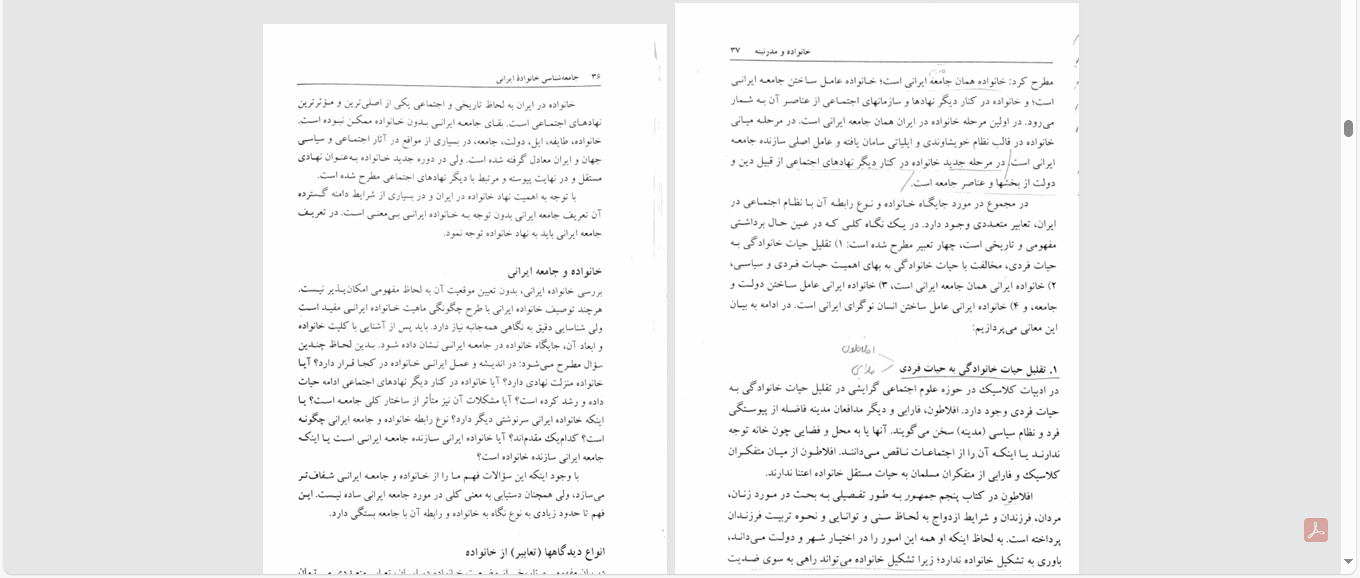 ۳۶ جامعه‌شناسی خانوادهٔ ایرانی
خانواده در ایران به لحاظ تاریخی و اجتماعی یکی از اصلی‌ترین و مؤثرترین
نهادهای اجتماعی است. بقای جامعه ایرانی بدون خانواده ممکن نبوده است.
خانواده، طایفه، ایل، دولت، جامعه، در بسیاری از مواقع در آثار اجتماعی و سیاسی
جهان و ایران معادل گرفته شده است. ولی در دوره جدید خانواده به‌عنوان نهادی
مستقل و در نهایت پیوسته و مرتبط با دیگر نهادهای اجتماعی مطرح شده است.
با توجه به اهمیت نهاد خانواده در ایران و در بسیاری از شرایط دامنه گسترده
آن تعریف جامعه ایرانی بدون توجه به خانواده ایرانی بی‌معنی است. در تعریف
جامعه ایرانی باید به نهاد خانواده توجه نمود.
خانواده و جامعه ایرانی
بررسی خانواده ایرانی، بدون تعیین موقعیت آن به لحاظ مفهومی امکان‌پذیر نیست.
هرچند توصیف خانواده ایرانی با طرح چگونگی ماهیت خانواده ایرانی مفید است
ولی شناسایی دقیق به نگاهی همه‌جانبه نیاز دارد. باید پس از آشنایی با کلیت خانواده
و ابعاد آن، جایگاه خانواده در جامعه ایرانی نشان داده شود. بدین لحاظ چندین
سؤال مطرح می‌شود: در اندیشه و عمل ایرانی خانواده در کجا قرار دارد؟ آیا
خانواده منزلت نهادی دارد؟ آیا خانواده در کنار دیگر نهادهای اجتماعی ادامه حیات
داده و رشد کرده است؟ آیا مشکلات آن نیز متأثر از ساختار کلی جامعه است؟ یا
اینکه خانواده ایرانی سرنوشتی دیگر دارد؟ نوع رابطه خانواده و جامعه ایرانی چگونه
است؟ کدام‌یک مقدم‌اند؟ آیا خانواده ایرانی سازنده جامعه ایرانی است یا اینکه
جامعه ایرانی سازنده خانواده است؟
با وجود اینکه این سؤالات فهم ما را از خانواده و جامعه ایرانی شفاف‌تر
می‌سازد، ولی همچنان دستیابی به معنی کلی در مورد جامعه ایرانی ساده نیست. این
فهم تا حدود زیادی به نوع نگاه به خانواده و رابطه آن با جامعه بستگی دارد.
انواع دیدگاهها (تعابیر) از خانواده
خانواده و مدرنیته ۳۷
مطرح کرد: خانواده همان جامعه ایرانی است؛ خانواده عامل ساختن جامعه ایرانی
است؛ و خانواده در کنار دیگر نهادها و سازمانهای اجتماعی از عناصر آن به شمار
می‌رود. در اولین مرحله خانواده در ایران همان جامعه ایرانی است. در مرحله میانی
خانواده در قالب نظام خویشاوندی و ایلیاتی سامان یافته و عامل اصلی سازنده جامعه
ایرانی است. در مرحله جدید خانواده در کنار دیگر نهادهای اجتماعی از قبیل دین و
دولت از بخشها و عناصر جامعه است.
در مجموع در مورد جایگاه خانواده و نوع رابطه آن با نظام اجتماعی در
ایران، تعابیر متعددی وجود دارد. در یک نگاه کلی که در عین حال برداشتی
مفهومی و تاریخی است، چهار تعبیر مطرح شده است: ۱) تقلیل حیات خانوادگی به
حیات فردی، مخالفت با حیات خانوادگی به بهای اهمیت حیات فردی و سیاسی،
۲) خانواده ایرانی همان جامعه ایرانی است، ۳) خانواده ایرانی عامل ساختن دولت و
جامعه، و ۴) خانواده ایرانی عامل ساختن انسان نوگرای ایرانی است. در ادامه به بیان
این معانی می‌پردازیم:
افلاطون
فارابی
۱. تقلیل حیات خانوادگی به حیات فردی
در ادبیات کلاسیک در حوزه علوم اجتماعی گرایشی در تقلیل حیات خانوادگی به
حیات فردی وجود دارد. افلاطون، فارابی و دیگر مدافعان مدینه فاضله از پیوستگی
فرد و نظام سیاسی (مدینه) سخن می‌گویند. آنها یا به محل و فضایی چون خانه توجه
ندارند یا اینکه آن را از اجتماعات ناقص می‌دانند. افلاطون از میان متفکران
کلاسیک و فارابی از متفکران مسلمان به حیات مستقل خانواده اعتنا ندارند.
افلاطون در کتاب پنجم جمهور به طور تفصیلی به بحث در مورد زنان،
مردان، فرزندان و شرایط ازدواج به لحاظ سنی و توانایی و نحوه تربیت فرزندان
پرداخته است. به لحاظ اینکه او همه این امور را در اختیار شهر و دولت می‌داند،
باوری به تشکیل خانواده ندارد؛ زیرا تشکیل خانواده می‌تواند راهی به سوی ضدیت